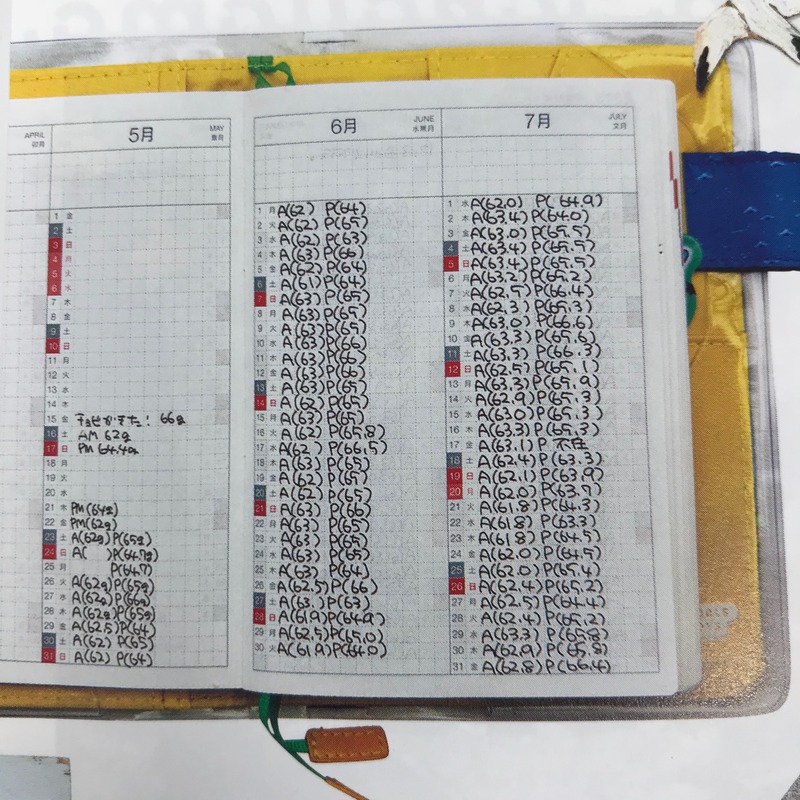 APRIL
卯月
5月
MAY
皐月
1 金
2 土
3 日
4 月
5 火
6 水
7 木
8 金
9 土
10 日
11 月
12 火
13 水
14 木
15 金 チョビがきた! 66g
16 土 AM 62g
17 日 PM 64.4g
18 月
19 火
20 水
21 木 PM(64g)
22 金 PM(62g)
23 土 A(62g) P(65g)
24 日 A( ) P(64.7g)
25 月 P(64.7)
26 火 A(62g) P(65g)
27 水 A(62g) P(66g)
28 木 A(62g) P(65g)
29 金 A(62.5) P(64)
30 土 A(62) P(65)
31 日 A(62) P(64)
6月
JUNE
水無月
1 月 A(62) P(64)
2 火 A(62) P(65)
3 水 A(62) P(63)
4 木 A(63) P(66)
5 金 A(62) P(64)
6 土 A(61) P(64)
7 日 A(63) P(65)
8 月 A(63) P(65)
9 火 A(63) P(65)
10 水 A(63) P(65)
11 木 A(63) P(66)
12 金 A(63) P(66)
13 土 A(63) P(65)
14 日 A(62) P(65)
15 月 A(63) P(65)
16 火 A(62) P(65.8)
17 水 A(62) P(66.5)
18 木 A(63) P(65)
19 金 A(62) P(65)
20 土 A(62) P(65)
21 日 A(63) P(66)
22 月 A(63) P(65)
23 火 A(63) P(65)
24 水 A(63) P(65)
25 木 A(63) P(64)
26 金 A(62.5) P(66)
27 土 A(63.) P(63)
28 日 A(61.9) P(64.9)
29 月 A(62.5) P(65.0)
30 火 A(61.9) P(64.0)
7月
JULY
文月
1 水 A(62.0) P(64.9)
2 木 A(63.4) P(64.0)
3 金 A(63.0) P(65.5)
4 土 A(63.4) P(65.5)
5 日 A(63.4) P(65.5)
6 月 A(63.2) P(65.2)
7 火 A(62.5) P(66.4)
8 水 A(62.3) P(65.3)
9 木 A(63.0) P(66.6)
10 金 A(63.3) P(65.6)
11 土 A(63.3) P(66.3)
12 日 A(62.5) P(65.1)
13 月 A(63.3) P(65.9)
14 火 A(62.9) P(65.3)
15 水 A(63.0) P(65.3)
16 木 A(63.3) P(65.3)
17 金 A(63.1) P 不在
18 土 A(62.4) P(63.3)
19 日 A(62.1) P(63.9)
20 月 A(62.0) P(63.7)
21 火 A(61.8) P(64.3)
22 水 A(61.8) P(63.3)
23 木 A(61.8) P(64.5)
24 金 A(62.0) P(64.5)
25 土 A(62.0) P(65.4)
26 日 A(62.4) P(65.2)
27 月 A(62.5) P(64.4)
28 火 A(62.4) P(65.2)
29 水 A(63.3) P(65.8)
30 木 A(62.9) P(65.8)
31 金 A(62.8) P(66.4)